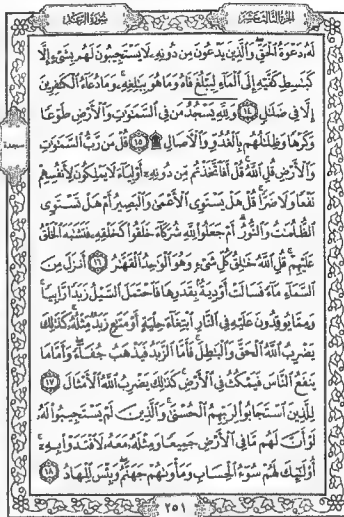 الجزء الثالث عشر
سورة الرعد
لَهُۥ دَعْوَةُ ٱلْحَقِّ وَٱلَّذِينَ يَدْعُونَ مِن دُونِهِۦ لَا يَسْتَجِيبُونَ لَهُم بِشَىْءٍ إِلَّا
كَبَـٰسِطِ كَفَّيْهِ إِلَى ٱلْمَآءِ لِيَبْلُغَ فَاهُ وَمَا هُوَ بِبَـٰلِغِهِۦ وَمَا دُعَآءُ ٱلْكَـٰفِرِينَ
إِلَّا فِى ضَلَـٰلٍ ١٤ وَلِلَّهِ يَسْجُدُ مَن فِى ٱلسَّمَـٰوَٰتِ وَٱلْأَرْضِ طَوْعًا
وَكَرْهًا وَظِلَـٰلُهُم بِٱلْغُدُوِّ وَٱلْـَٔاصَالِ ۩ ١٥ قُلْ مَن رَّبُّ ٱلسَّمَـٰوَٰتِ
وَٱلْأَرْضِ قُلِ ٱللَّهُ قُلْ أَفَٱتَّخَذْتُم مِّن دُونِهِۦٓ أَوْلِيَآءَ لَا يَمْلِكُونَ لِأَنفُسِهِمْ
نَفْعًا وَلَا ضَرًّا قُلْ هَلْ يَسْتَوِى ٱلْأَعْمَىٰ وَٱلْبَصِيرُ أَمْ هَلْ تَسْتَوِى
ٱلظُّلُمَـٰتُ وَٱلنُّورُ أَمْ جَعَلُوا۟ لِلَّهِ شُرَكَآءَ خَلَقُوا۟ كَخَلْقِهِۦ فَتَشَـٰبَهَ ٱلْخَلْقُ
عَلَيْهِمْ قُلِ ٱللَّهُ خَـٰلِقُ كُلِّ شَىْءٍ وَهُوَ ٱلْوَٰحِدُ ٱلْقَهَّـٰرُ ١٦ أَنزَلَ مِنَ
ٱلسَّمَآءِ مَآءً فَسَالَتْ أَوْدِيَةٌۢ بِقَدَرِهَا فَٱحْتَمَلَ ٱلسَّيْلُ زَبَدًا رَّابِيًا
وَمِمَّا يُوقِدُونَ عَلَيْهِ فِى ٱلنَّارِ ٱبْتِغَآءَ حِلْيَةٍ أَوْ مَتَـٰعٍ زَبَدٌ مِّثْلُهُۥ كَذَٰلِكَ
يَضْرِبُ ٱللَّهُ ٱلْحَقَّ وَٱلْبَـٰطِلَ فَأَمَّا ٱلزَّبَدُ فَيَذْهَبُ جُفَآءً وَأَمَّا مَا
يَنفَعُ ٱلنَّاسَ فَيَمْكُثُ فِى ٱلْأَرْضِ كَذَٰلِكَ يَضْرِبُ ٱللَّهُ ٱلْأَمْثَالَ ١٧
لِلَّذِينَ ٱسْتَجَابُوا۟ لِرَبِّهِمُ ٱلْحُسْنَىٰ وَٱلَّذِينَ لَمْ يَسْتَجِيبُوا۟ لَهُۥ
لَوْ أَنَّ لَهُم مَّا فِى ٱلْأَرْضِ جَمِيعًا وَمِثْلَهُۥ مَعَهُۥ لَٱفْتَدَوْا۟ بِهِۦٓ
أُو۟لَـٰٓئِكَ لَهُمْ سُوٓءُ ٱلْحِسَابِ وَمَأْوَىٰهُمْ جَهَنَّمُ وَبِئْسَ ٱلْمِهَادُ ١٨
سجدة
٢٥١